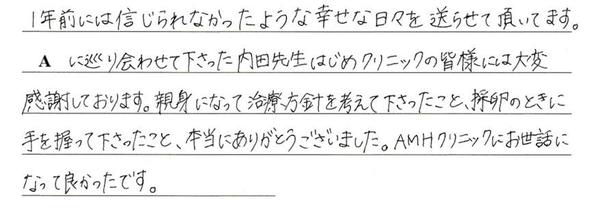 1年前には信じられなかったような幸せな日々を送らせて頂いてます。
A に巡り会わせて下さった内田先生はじめクリニックの皆様には大変
感謝しております。親身になって治療方針を考えて下さったこと、採卵のときに
手を握って下さったこと、本当にありがとうございました。AMHクリニックにお世話に
なって良かったです。